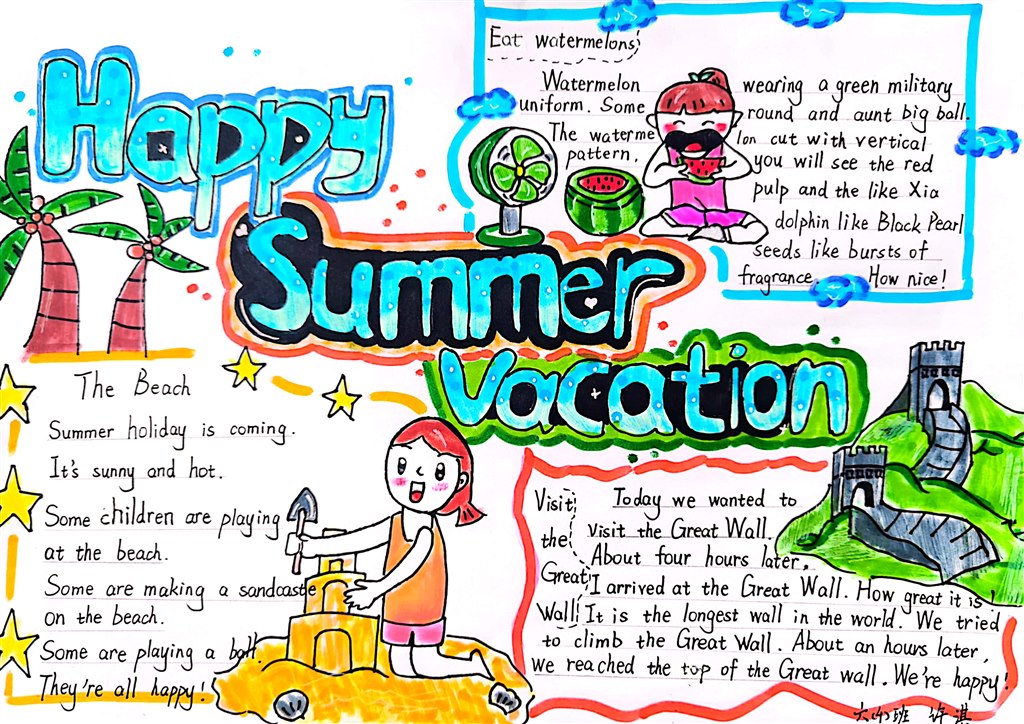 Happy
Summer
vacation
Eat watermelons
Watermelon wearing a green military
uniform. Some round and aunt big ball.
The waterme lon cut with vertical
pattern. you will see the red
pulp and the like Xia
dolphin like Black Pearl
seeds like bursts of
fragrance How nice!
The Beach
Summer holiday is coming.
It's sunny and hot.
Some children are playing
at the beach.
Some are making a sandcastle
on the beach.
Some are playing a ball.
They're all happy!
Visit
the
Great
Wall
Today we wanted to
visit the Great Wall.
About four hours later,
I arrived at the Great Wall. How great it is!
It is the longest wall in the world. We tried
to climb the Great Wall. About an hours later,
we reached the top of the Great wall. We're happy!
班